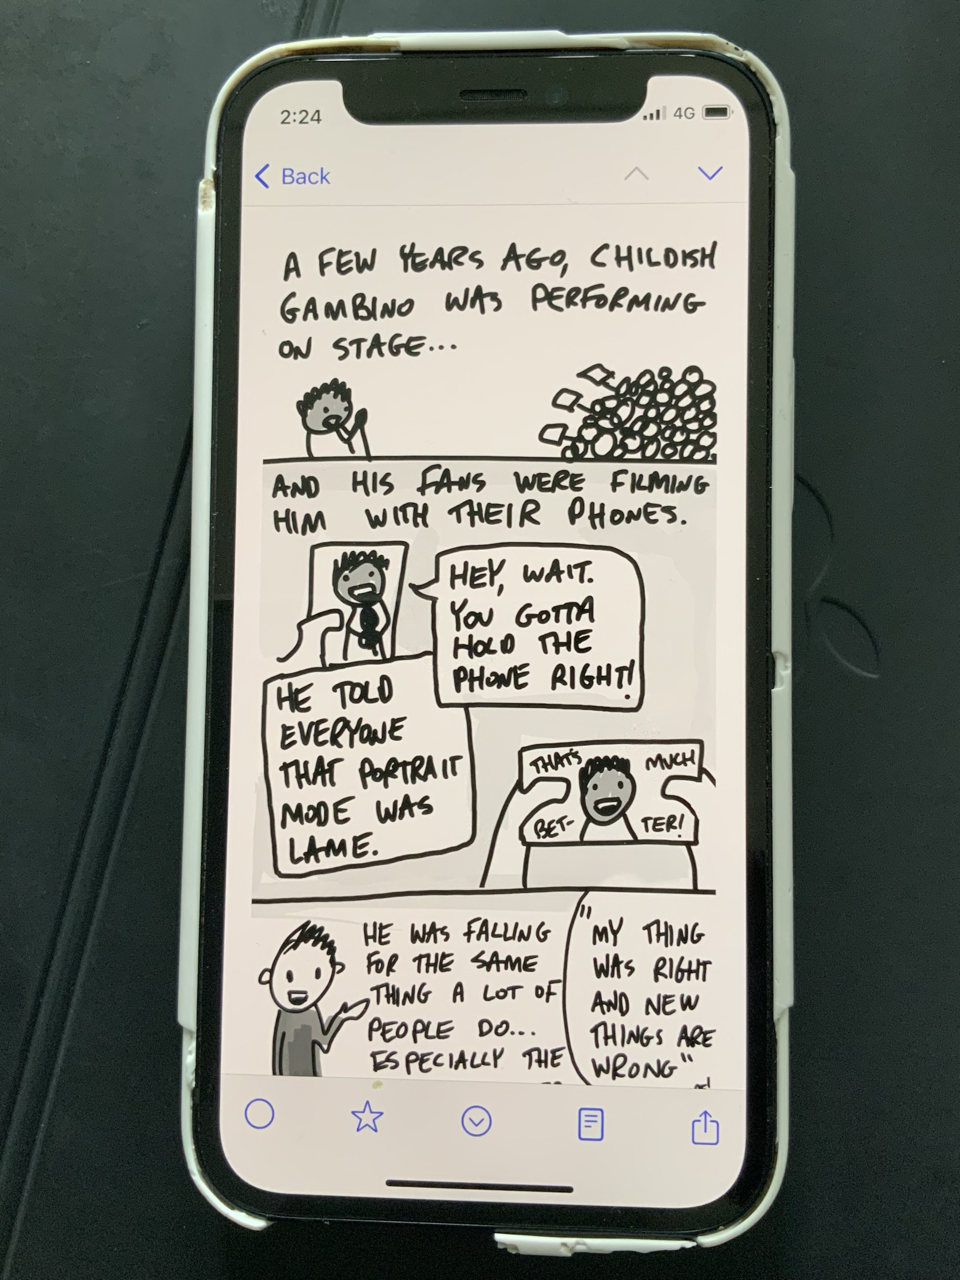 2:24
4G
Back
A FEW YEARS AGO, CHILDISH
GAMBINO WAS PERFORMING
ON STAGE...
AND HIS FANS WERE FILMING
HIM WITH THEIR PHONES.
HEY, WAIT.
YOU GOTTA
HOLD THE
PHONE RIGHT!
HE TOLD
EVERYONE
THAT PORTRAIT
MODE WAS
LAME.
THAT'S MUCH
BET- TER!
HE WAS FALLING
FOR THE SAME
THING A LOT OF
PEOPLE DO...
ESPECIALLY THE
"MY THING
WAS RIGHT
AND NEW
THINGS ARE
WRONG"